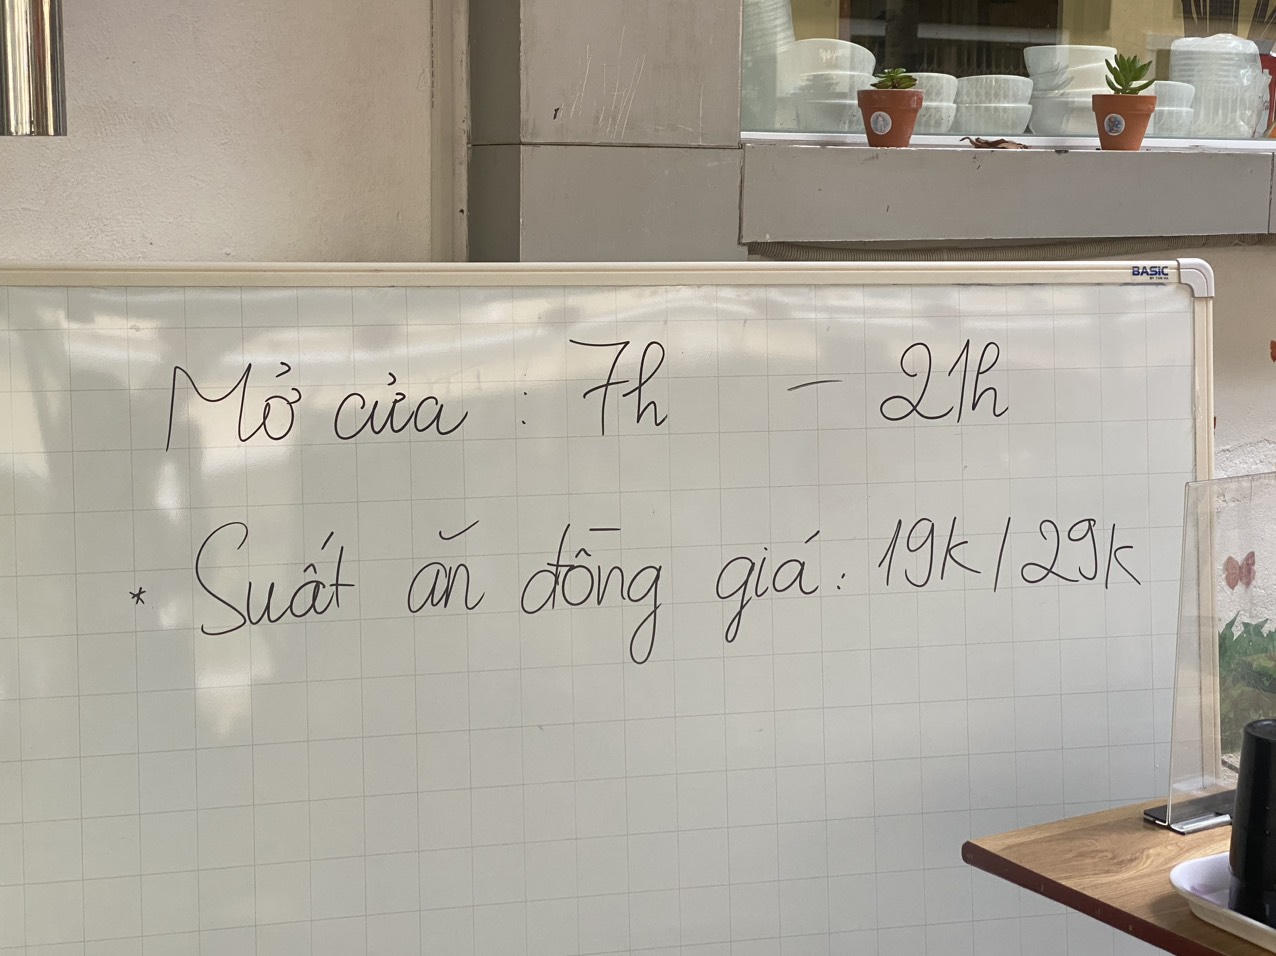 BASIC
Mở cửa : 7h – 21h
* Suất ăn đồng giá : 19k / 29k